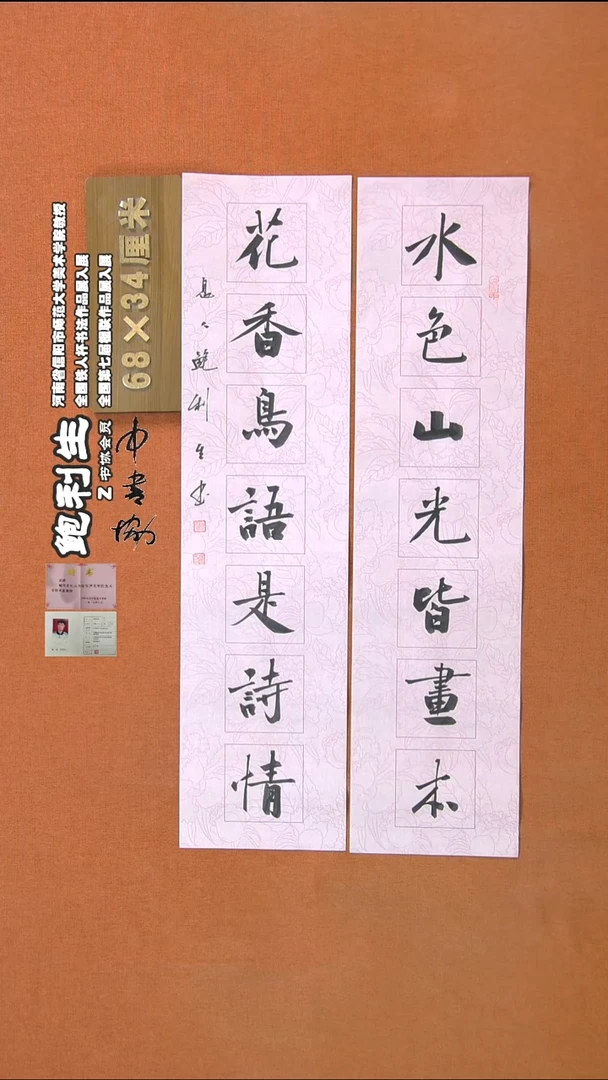 水色山光皆畫本
花香鳥語是詩情
息人鲍利生书
68×34厘米
河南省信阳市师范大学美术学院教授
全国铁人杯书法作品展入展
全国第七届楹联作品展入展
鲍利生
Z书协会员
中书协